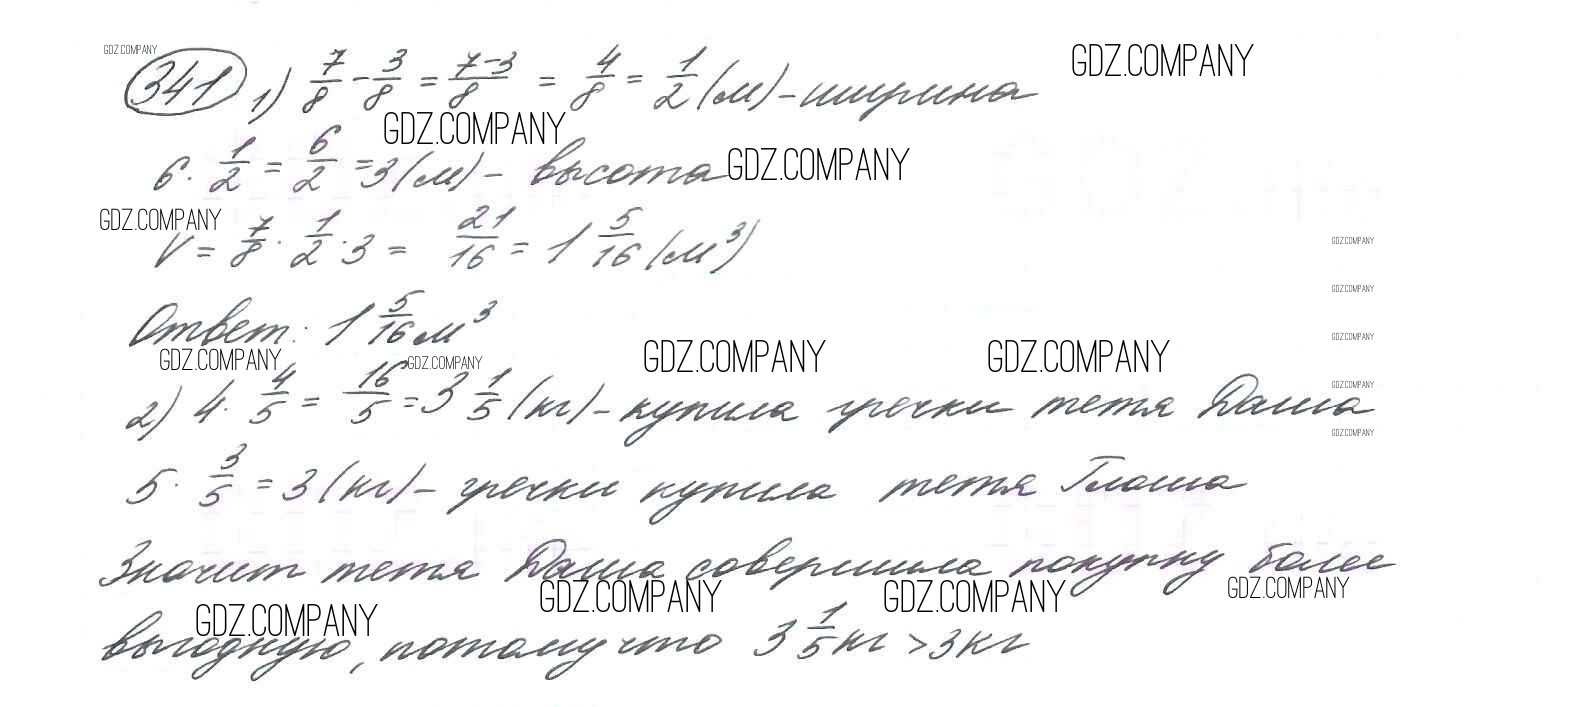 GDZ.COMPANY
341 1) 7/8 - 3/8 = 7-3/8 = 4/8 = 1/2 (м) - ширина GDZ.COMPANY
GDZ.COMPANY
6 · 1/2 = 6/2 = 3 (м) - высота GDZ.COMPANY
GDZ.COMPANY
V = 7/8 · 1/2 · 3 = 21/16 = 1 5/16 (м³) GDZ.COMPANY
GDZ.COMPANY
Ответ: 1 5/16 м³ GDZ.COMPANY
GDZ.COMPANY GDZ.COMPANY GDZ.COMPANY GDZ.COMPANY
GDZ.COMPANY
2) 4 · 4/5 = 16/5 = 3 1/5 (кг) - купила гречки тетя Даша
GDZ.COMPANY
5 · 3/5 = 3 (кг) - гречки купила тетя Глаша
Значит тетя Даша совершила покупку более
GDZ.COMPANY GDZ.COMPANY GDZ.COMPANY GDZ.COMPANY
выгодную, потому что 3 1/5 кг > 3 кг